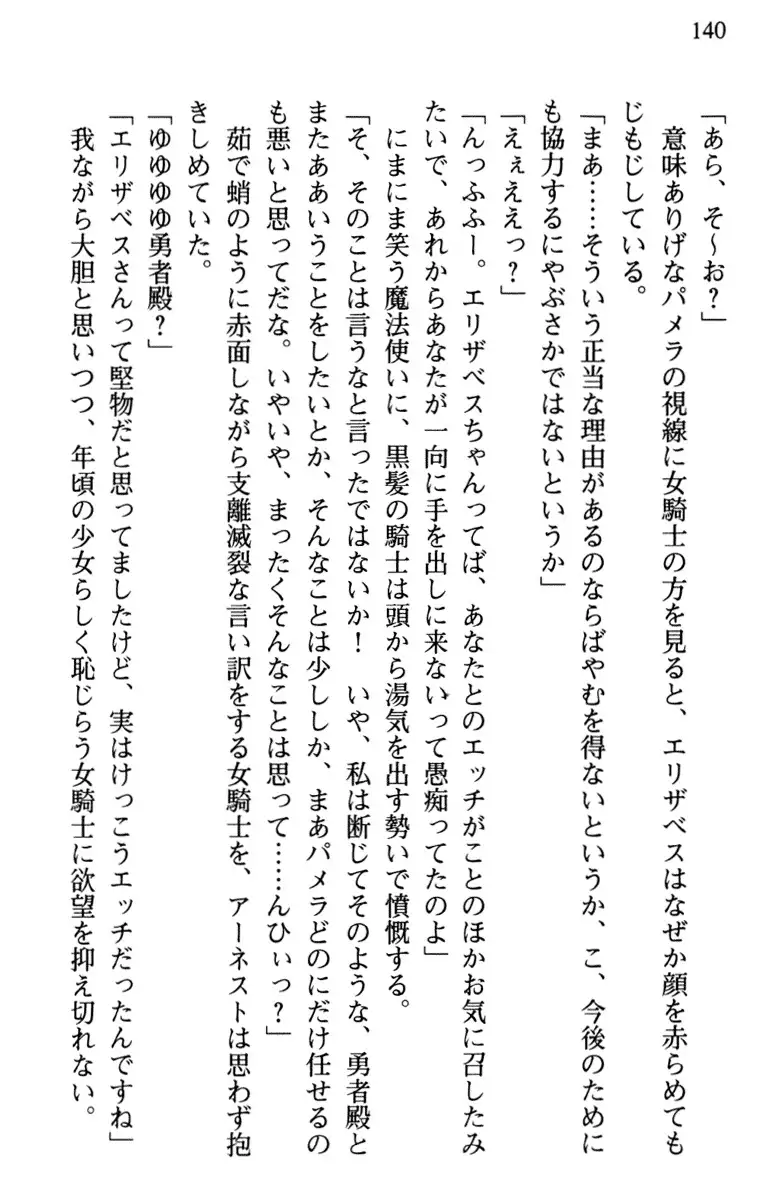 140
「あら、そ～お？」
意味ありげなパメラの視線に女騎士の方を見ると、エリザベスはなぜか顔を赤らめても
じもじしている。
「まあ……そういう正当な理由があるのならばやむを得ないというか、こ、今後のために
も協力するにやぶさかではないというか」
「えぇええっ？」
「んっふふー。エリザベスちゃんってば、あなたとのエッチがことのほかお気に召したみ
たいで、あれからあなたが一向に手を出しに来ないって愚痴ってたのよ」
にまにま笑う魔法使いに、黒髪の騎士は頭から湯気を出す勢いで憤慨する。
「そ、そのことは言うなと言ったではないか！　いや、私は断じてそのような、勇者殿と
またああいうことをしたいとか、そんなことは少ししか、まあパメラどのにだけ任せるの
も悪いと思ってだな。いやいや、まったくそんなことは思って……んひぃっ？」
茹で蛸のように赤面しながら支離滅裂な言い訳をする女騎士を、アーネストは思わず抱
きしめていた。
「ゆゆゆゆ勇者殿？」
「エリザベスさんって堅物だと思ってましたけど、実はけっこうエッチだったんですね」
我ながら大胆と思いつつ、年頃の少女らしく恥じらう女騎士に欲望を抑え切れない。